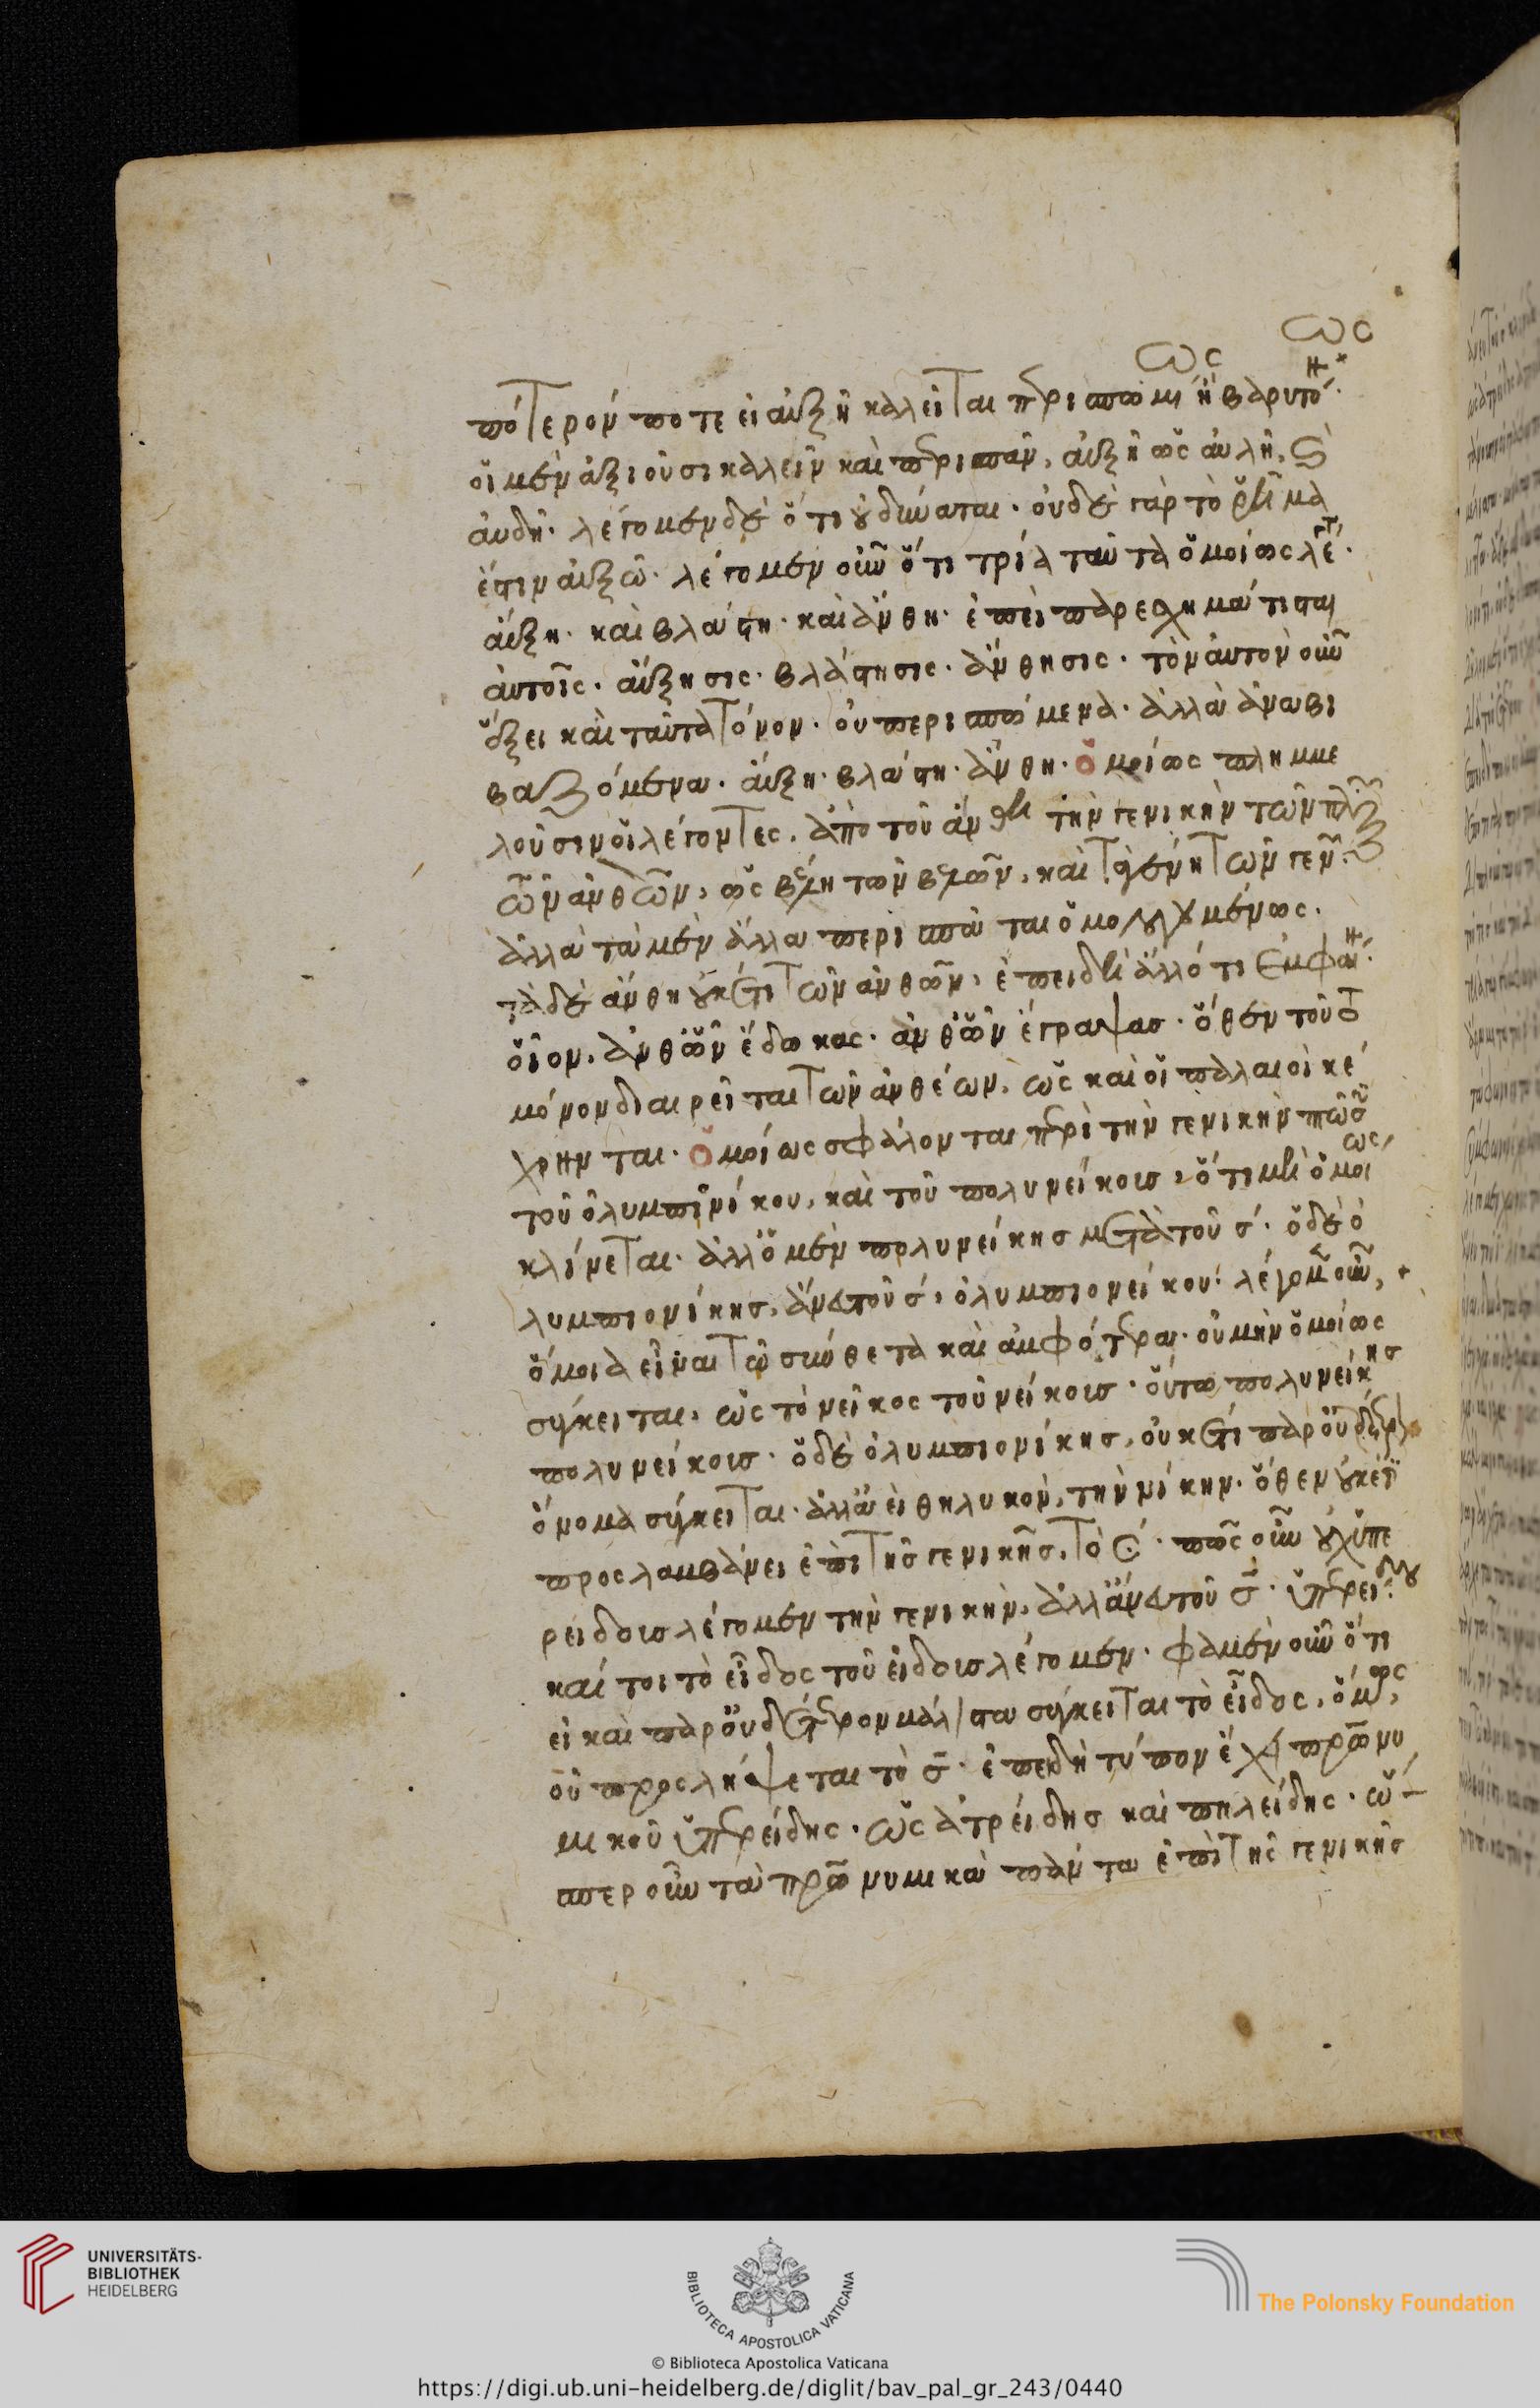 πότερόν ποτε εἰ αὐξῆ καλεῖται περισπωμένως ἢ βαρυτόνως
οἱ μὲν ἀξιοῦσι καλεῖν καὶ περισπᾶν, αὐξῆ ὡς αὐλῆ, καὶ
αὐδή. λέγομεν δὲ ὅτι οὐ δύναται. οὐδὲ γὰρ τὸ ῥῆμα
ἐστιν αὐξῶ. λέγομεν οὖν ὅτι τρία ταῦτα ὁμοίως
αὔξη. καὶ βλάστη. καὶ ἄνθη. ἐπεὶ παρεσχημάτισται
αὐτοῖς. αὔξησις. βλάστησις. ἄνθησις. τὸν αὐτὸν οὖν
ἕξει καὶ ταῦτα τόνον. οὐ περισπώμενα. ἀλλὰ ἀναβι
βαζόμενα. αὔξη. βλάστη. ἄνθη. ὁμοίως πλημμε
λοῦσιν οἱ λέγοντες. ἀπὸ τοῦ ἄνθη τὴν γενικὴν τῶν
ὧν ἀνθῶν, ὡς βέλη τῶν βελῶν, καὶ γένη τῶν γενῶν.
ἀλλὰ τὰ μὲν ἄλλα περισπᾶται ὁμολογουμένως.
τὰ δὲ ἄνθη οὐκέτι τῶν ἀνθῶν, ἐπειδὴ ἄλλό τι ἐμφαν
οἷον. ἀνθῶν ἔδωκας. ἀνθῶν ἔγραψας. ὅθεν τοῦτο
μόνον διαιρεῖται τῶν ἀνθέων. ὡς καὶ οἱ παλαιοὶ κέ
χρηνται. ὁμοίως σφάλονται περὶ τὴν γενικὴν πτῶσ
τοῦ ὀλυμπιονίκου, καὶ τοῦ πολυνείκους, ὅτι μὴ ὁμοίως
κλίνεται. ἀλλ' ὁ μὲν πολυνείκης μετὰ τοῦ σ. ὁ δὲ ὀ
λυμπιονίκης. ἄνευ τοῦ σ, ὀλυμπιονείκου. λέγομεν οὖν,
ὅμοια εἶναι τῶ συνθετὰ καὶ ἀμφότερα. οὐ μὴν ὁμοίως
σύγκειται, ὡς τὸ νεῖκος τοῦ νείκους. οὕτω πολυνείκης
πολυνείκους. ὁ δὲ ὀλυμπιονίκης, οὐκέτι παρ' οὐδέτερον
ὄνομα σύγκειται. ἀλλ' εἰ θηλυκόν, τὴν νίκην. ὅθεν οὐκέτι
προσλαμβάνει ἐπὶ τῆς γενικῆς. τὸ σ. πῶς οὖν οὐχ ὑπε
ρείδους λέγομεν τὴν γενικήν, ἀλλ' ἄνευ τοῦ σ. ὑπερείδου
καίτοι τὸ εἶδος τοῦ εἴδους λέγομεν. φαμὲν οὖν ὅτι
εἰ καὶ παρ' οὐδέτερον μάλιστα σύγκειται τὸ εἶδος, ὅμως,
οὐ προσλήψεται τὸ σ. ἐπειδὴ τύπον ἔχει πατρωνυ
μικοῦ ὑπερείδης. ὡς ἀτρείδης καὶ πηλείδης. ὥ
σπερ οὖν τὰ πατρωνυμικὰ πάντα ἐπὶ τῆς γενικῆς
UNIVERSITÄTS-
BIBLIOTHEK
HEIDELBERG
BIBLIOTECA APOSTOLICA VATICANA
The Polonsky Foundation
© Biblioteca Apostolica Vaticana
https://digi.ub.uni-heidelberg.de/diglit/bav_pal_gr_243/0440